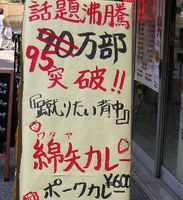 話題沸騰
95
20万部
突破!!
『蹴りたい背中』
ワタヤ
綿矢カレー
ポークカレー ¥600